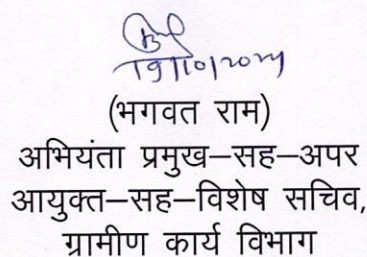 19/10/2024
(भगवत राम)
अभियंता प्रमुख–सह–अपर
आयुक्त–सह–विशेष सचिव,
ग्रामीण कार्य विभाग